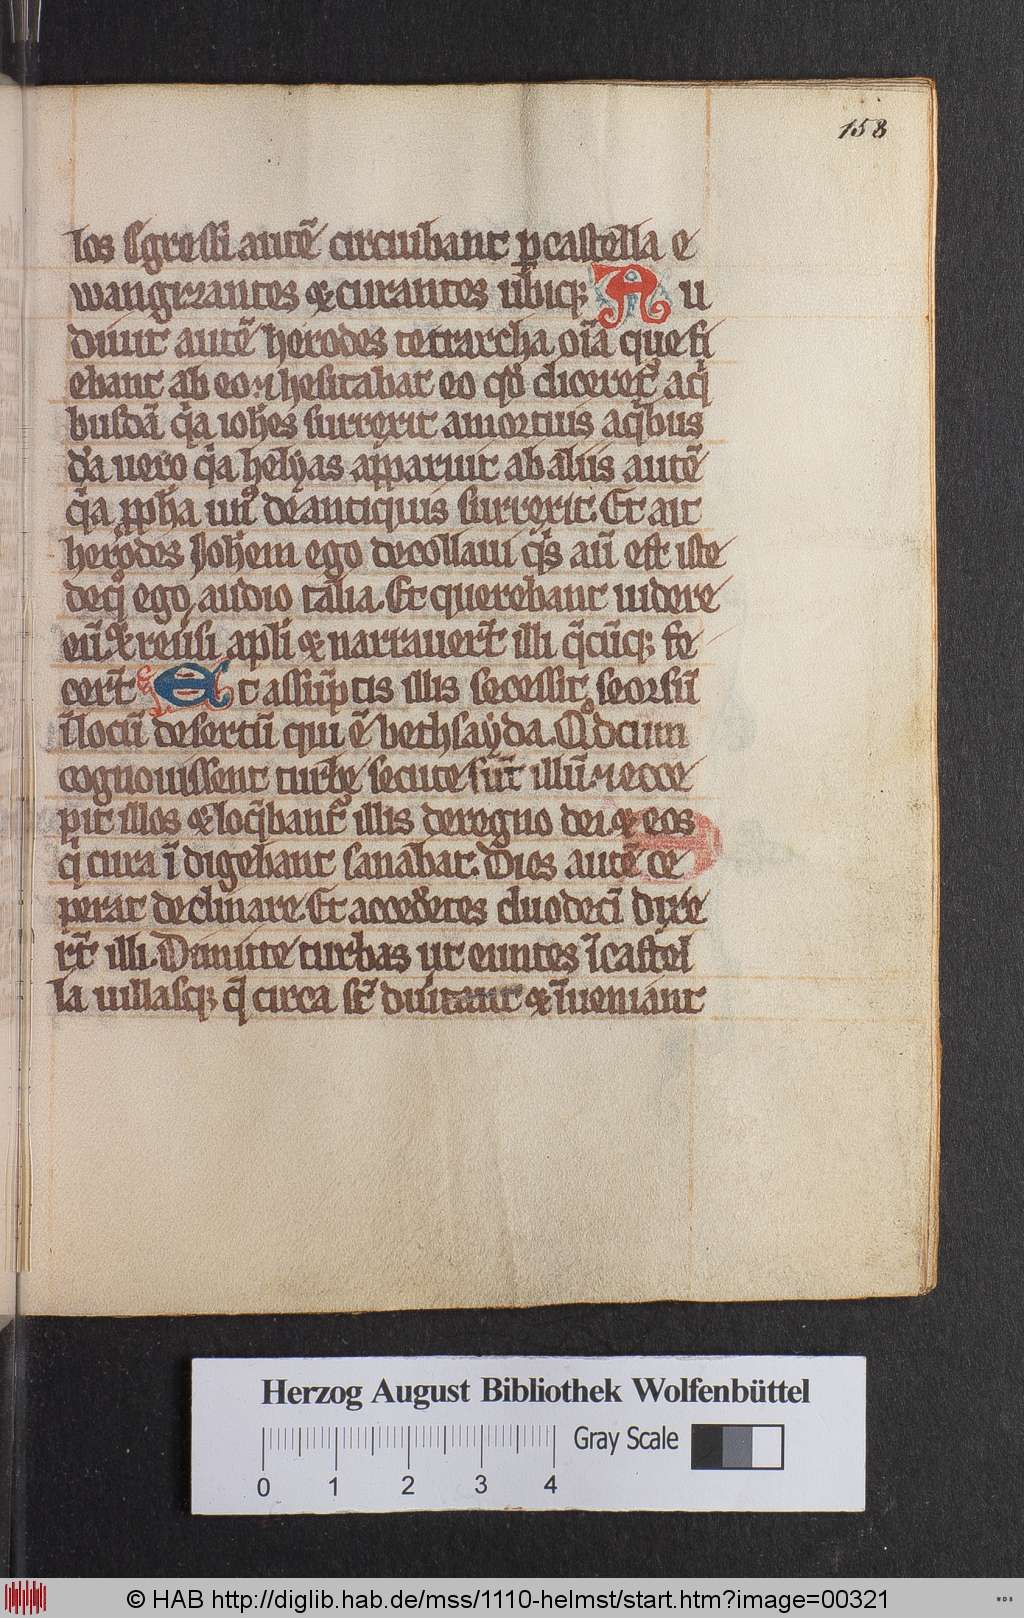 158
los Egressi autē circuibant ꝑ castella e
wangizantes et curantes ubiq; Au
diuit autē herodes tetrarcha oīa que fi
ebant ab eo. ⁊ hesitabat eo qd̄ diceret᷑ a qͥ
busdā qͥa ioh̄es surrexit a mortuis a qͥbus
dā uero qͥa helyas apparuit ab aliis autē
qͥa ꝓph̄a unꝰ de antiquis surrexit. Et ait
herodes Joh̄em ego decollaui qͥs aū est iste
de qͦ ego audio talia. Et querebant uidere
eū. Et reūsi apl̄i et narrauert̄ illi q̄cūq; fe
cert̄ Et assūptis illis secessit seorsū
ī locū desertū qui ē bethsayda. Qd cum
cognouissent turbe secute sūt illū. ⁊ exce
pit illos et loq̄bant᷑ illis de regno dei. et eos
qͥ cura īdigebant sanabat. Dies autē ce
perat declinare. Et accedētes duodecī dixe
rt̄ illi. Dimitte turbas ut euntes ī castel
la uillasq; q̄ circa st̄ diūtant et īueniant
Herzog August Bibliothek Wolfenbüttel
Gray Scale
0 1 2 3 4
© HAB http://diglib.hab.de/mss/1110-helmst/start.htm?image=00321